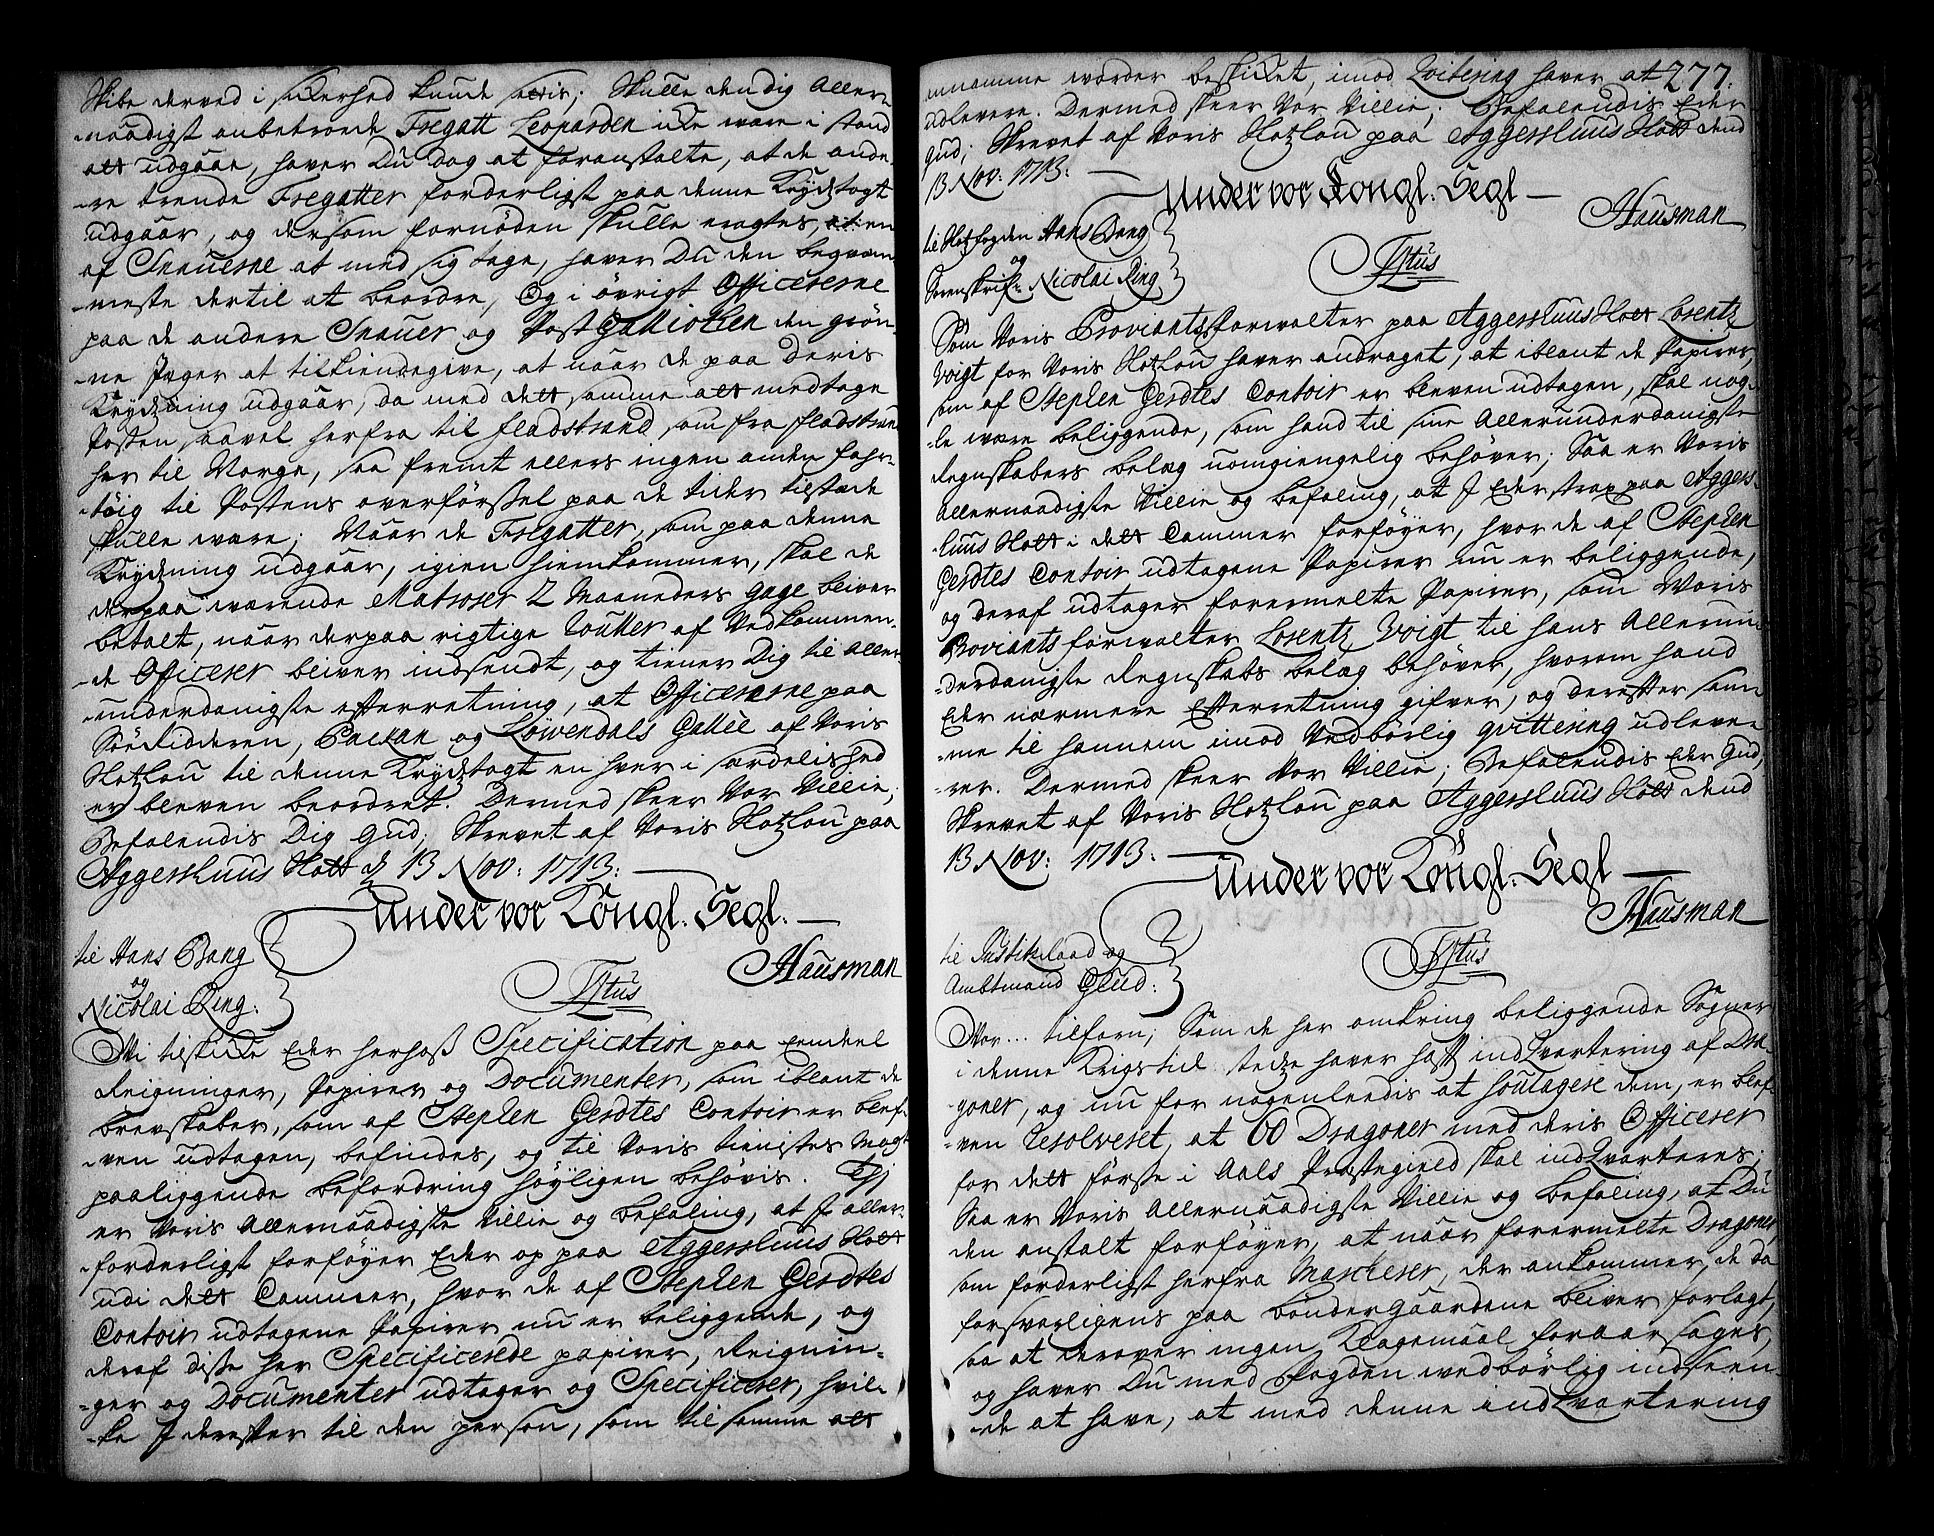 Skibe derved i sickerhed kunde settis; Skulle den dig Aller-
naadigst anbetroede Fregatt Leoparden icke være i stand
att udgaae, haver Du dog at foranstalte, at de ande-
-re trende Fregatter forderligst paa denne Krydstogt
udgaar, og dersom fornøden skulle eragtes, een
af Snauerne at med sig tage, haver Du den beqvem-
meste dertil at beordre, Og i øvrigt Officererne
paa de andere Snauer og Post Galliotten den grøn-
-ne Jæger at tilkiendegive, at naar de paa deris
Krydsning udgaar, da med dett samme att medtage
Posten saavel herfra til Fladstrand, som fra Fladstrand
her til Norge, saa fremt ellers ingen anden fahr-
-tøig til Postens overførssel paa de tider tilstæde
skulle være; Naar de Fregatter, som paa denne
Krydsning udgaar, igien hiemkommer, skal de
derpaa værende Matroser 2 Maaneders gage bliver
betalt, naar derpaa rigtige Roller af Vedkommen-
-de Officerer bliver indsendt, og tiener Dig til aller-
-underdanigste efterretning, at Officererne paa
SøeRidderen, Packan og Løwendals Gallei af Voris
Hotzlou til denne Krydstogt en hver i særdelished
er bleven beordret. Dermed skeer Vor Villie;
Befalendis Dig Gud; Skrevet af Voris Hotzlou paa
Aggershuus Slott d 13 Nov: 1713:
Under vor Kongl. Segl.
Hausman
til Hans Bang
og
Nicolai Ring:
Tytus
Wi tilskicke Eder herhoss Specification paa eendeel
Reigninger, Papirer og Documenter, som iblant de
brevskaber, som af Stephen Gerdtes Contoir er blef-
-ven udtagen, befindes, og til Voris tienistes Magt
paaliggende befordring høyligen behøvis. Thj
er Voris Allernaadigste Villie og befaling, at J aller-
-forderligst forføyer Eder op paa Aggershuus Slott
udi dett Cammer, hvor de af Stephen Gerdtes
Contoir udtagene Papirer nu er beliggende, og
deraf disse her Specificerede papirer, Reignin-
-ger og Documenter udtager og Specificerer, hvil-
-ke J derefter til den person, som til samme att
annamme vorder beskicket, imod Qvitering haver at 277.
udlevere. Dermed skeer Vor Villie; Befalendis Eder
Gud; Skrevet af Voris Hotzlou paa Aggershuus Slott dend
13 Nov: 1713:
Under vor Kongl. Segl
Hausman
til Slotzfogden Hans Bang
og
Sorenskrif: Nicolai Ring
Tytus
Som Voris Proviantsforvalter paa Aggershuus Slott Lorentz
Voigt for Voris Hotzlou haver andraget, at iblant de Papirer,
som af Stephen Gerdtes Contoir er bleven udtagen, skal nog-
-le være beliggende, som hand til sine Allerunderdanigste
Regnskabers belæg uomgiengelig behøver; Saa er Voris
allernaadigste Villie og befaling, at J Eder strax paa Aggers-
-huus Slott i dett Cammer forføyer, hvor de af Stephen
Gerdtes Contoir udtagene Papirer nu er beliggende,
og deraf udtager forermelte Papirer, som Voris
Proviantsforvalter Lorentz Voigt til hans Allerun-
-derdanigste Regnskabs belæg behøver, hvorom hand
Eder nærmere Efterretning gifver, og derefter sam-
-me til hannem imod Vedbørlig qvittering udleve-
-rer. Dermed skeer Vor Villie; Befalendis Eder Gud,
Skrevet af Voris Hotzlou paa Aggershuus Slott dend
13 Nov: 1713:
Under vor Kongl: Segl
Hausman
til Justitzraad og
Ambtmand Glud:
Tytus
Vor... tilforn; Som de her omkring beliggende Sogner
i denne Krigstid stedze haver haft indqvartering af Dra-
-goner, og nu for nogenleedis at soulagere dem, er blef-
-ven Resolveret, at 60 Dragoner med deris Officerer
for dett første i Aals Præstegield skal indqvarteres;
Saa er Voris Allernaadigste Villie og befaling, at Du
den anstalt forføyer, at naar forermelte Dragoner,
som forderligst herfra Marcherer, der ankommer, de da
forsvarligens paa bøndergaardene bliver forlagt,
saa at derover ingen Klagemaal foraarsages,
og haver Du med Fogden vedbørlig indseen-
-de at have, at med denne indqvartering